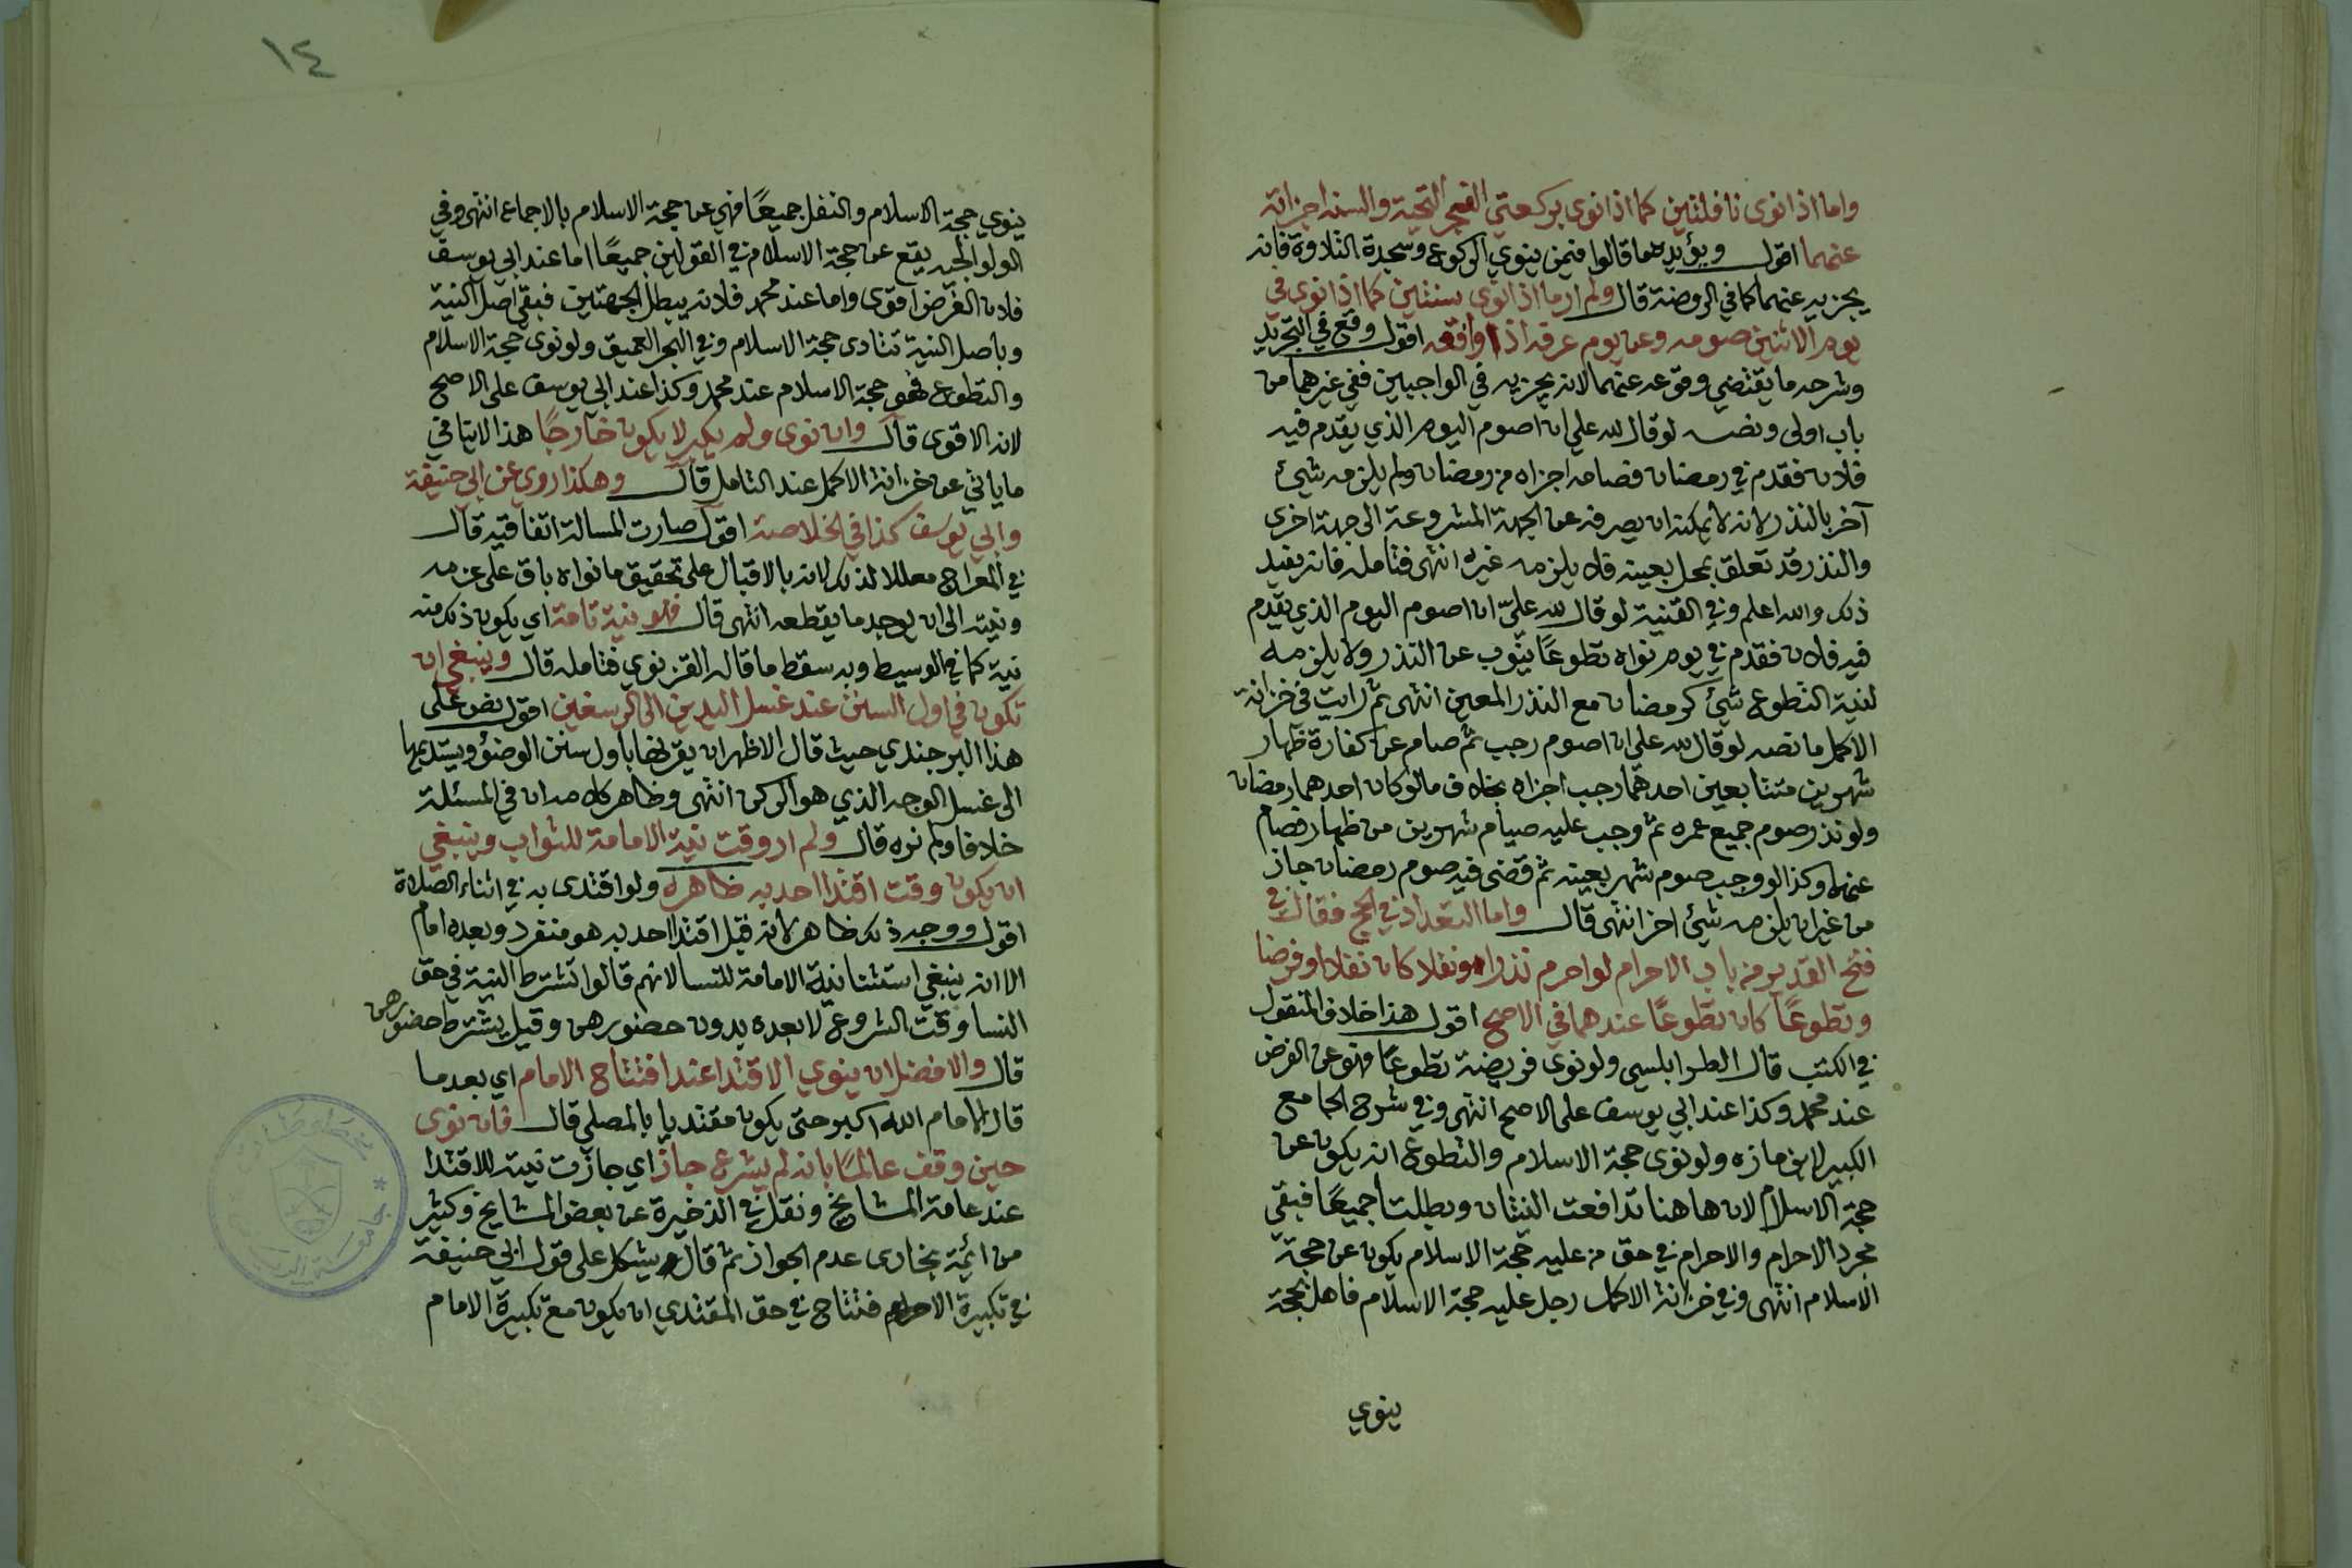 واما اذا نوى نافلتين كما اذا نوى بركعتي الفجر التحية والسنة اجزاته
عنهما اقول ويؤيده ما قالوا فيمن ينوي الركوع وسجدة التلاوة فانه
يجزيه عنهما كما في الروضة قال ولم ار ما اذا نوى سنتين كما اذا نوى في
يوم الاثنين صومه وعن يوم عرفه اذا وافقه اقول وقع في التجريد
وشرحه ما يقتضي وقوعه عنهما لانه يجزيه في الواجبين ففي غيرهما من
باب اولى ونصه لو قال لله علي ان اصوم اليوم الذي يقدم فيه
فلان فقدم في رمضان فصامه اجزاه من رمضان ولم يلزمه شيئ
آخر بالنذر لانه لا يمكنه ان يصرفه عن الجهة المشروعة الى جهة اخرى
والنذر قد تعلق بمحل بعينه فلا يلزمه غيره انتهى فتامله فانه يفيد
ذلك والله اعلم وفي القنية لو قال لله عليّ ان اصوم اليوم الذي يقدم
فيه فلان فقدم في يوم نواه تطوعًا ينوب عن النذر ولا يلزمه
لنية التطوع شيئ كرمضان مع النذر المعين انتهى ثم رايت في خزانة
الاكمل ما نصه لو قال لله علي ان اصوم رجب ثم صام عن كفارة ظهار
شهرين متتابعين احدهما رجب اجزاه بخلاف ما لو كان احدهما رمضان
ولو نذر صوم جميع عمره ثم وجب عليه صيام شهرين من ظهار فصام
عنها وكذا لو وجب صوم شهر بعينه ثم قضى فيه صوم رمضان جاز
من غير ان يلزمه شيئ اخر انتهى قال واما التعداد في الحج فقال في
فتح القدير من باب الاحرام لو احرم نذرا ونفلا كان نفلا او فرضا
وتطوعًا كان تطوعًا عندهما في الاصح اقول هذا خلاف المنقول
في الكتب قال الطرابلسي ولو نوى فريضة تطوعًا فهو عن الفرض
عند محمد وكذا عند ابي يوسف على الاصح انتهى وفي شرح الجامع
الكبير لابن مازه ولو نوى حجة الاسلام والتطوع انه يكون عن
حجة الاسلام لان هاهنا تدافعت النيتان وبطلتا جميعًا فبقي
مجرد الاحرام والاحرام في حق من عليه حجة الاسلام يكون عن حجة
الاسلام انتهى وفي خزانة الاكمل رجل عليه حجة الاسلام فاهل بحجة
ينوي
١٤
ينوي حجة الاسلام والنفل جميعًا فهي عن حجة الاسلام بالاجماع انتهى وفي
الولوالجيه يقع عن حجة الاسلام في القولين جميعًا اما عند ابي يوسف
فلان الفرض اقوى واما عند محمد فلانه يبطل الجهتين فبقي اصل النية
وباصل النية تتادى حجة الاسلام وفي البحر العميق ولو نوى حجة الاسلام
والتطوع فهو حجة الاسلام عند محمد وكذا عند ابي يوسف على الاصح
لانه الاقوى قال وان نوى ولم يكبر لا يكون خارجًا هذا لا ينافي
ما ياتي عن خزانة الاكمل عند التامل قال وهكذا روي عن ابي حنيفة
وابي يوسف كذا في الخلاصة اقول صارت المسالة اتفاقية قال
في المعراج معللا لذلك لانه بالاقبال على تحقيق ما نواه باق على عزمه
ونيته الى ان يوجد ما يقطعه انتهى قال فهو نية تامة اي يكون ذلك منه
نية كما في الوسيط وبه سقط ما قاله القزنوي فتامله قال وينبغي ان
تكون في اول السنن عند غسل اليدين الى الرسغين اقول نص على
هذا البرجندي حيث قال الاظهر ان يقرنها باول سنن الوضؤ ويستديمها
الى غسل الوجه الذي هو الركن انتهى وظاهر كلامه ان في المسئلة
خلافا ولم نره قال ولم ار وقت نية الامامة للثواب وينبغي
ان يكون وقت اقتدا احد به ظاهره ولو اقتدى به في اثناء الصلاة
اقول ووجه ذلك ظاهر لانه قبل اقتدا احد به هو منفرد وبعده امام
الا انه ينبغي استثنا نية الامامة للنسا لانهم قالوا تشترط النية في حق
النسا وقت الشروع لا بعده بدون حضورهن وقيل يشترط حضورهن
قال والافضل ان ينوي الاقتدا عند افتتاح الامام اي بعد ما
قال الامام الله اكبر حتى يكون مقتديا بالمصلي قال فان نوى
حين وقف عالمًا بانه لم يشرع جاز اي جازت نيته للاقتدا
عند عامة المشايخ ونقل في الذخيرة عن بعض المشايخ وكثير
من ائمة بخارى عدم الجواز ثم قال ويشكل على قول ابي حنيفة
في تكبيرة الاحرام فتتاح في حق المقتدي ان يكون مع تكبيرة الامام